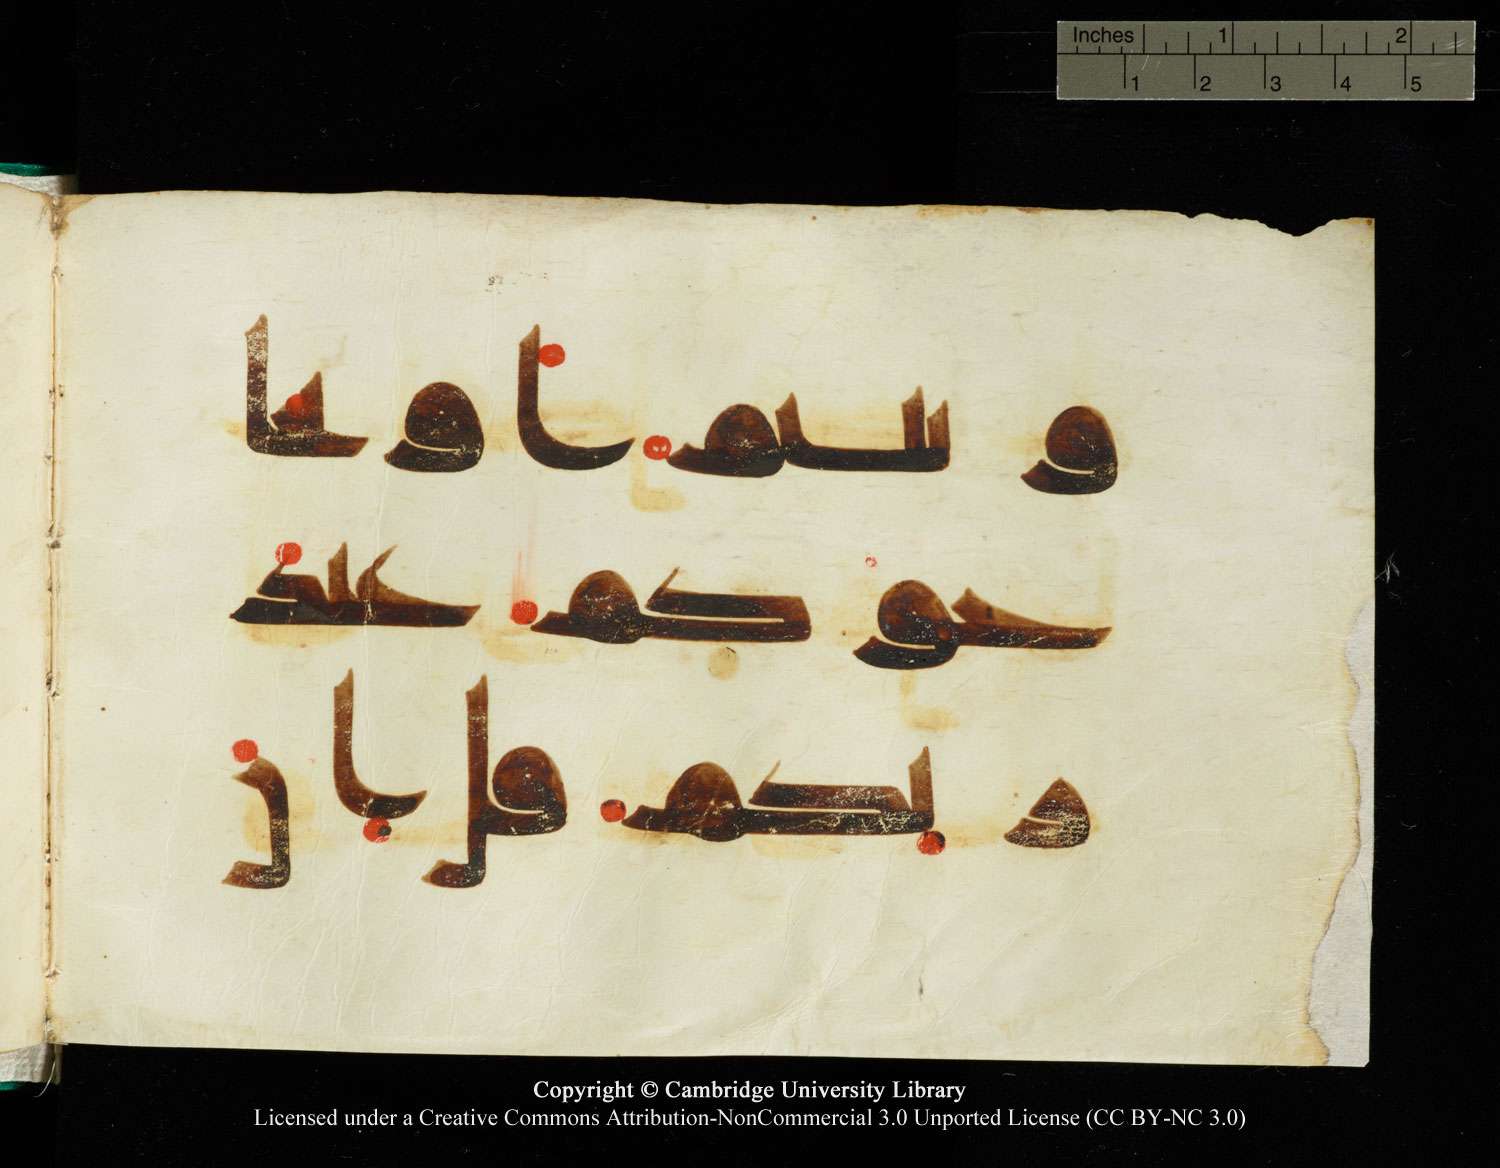 Inches 1 2
1 2 3 4 5
وتيتم او يحا
جوكم عند
ربكم قل ان
Copyright © Cambridge University Library
Licensed under a Creative Commons Attribution-NonCommercial 3.0 Unported License (CC BY-NC 3.0)